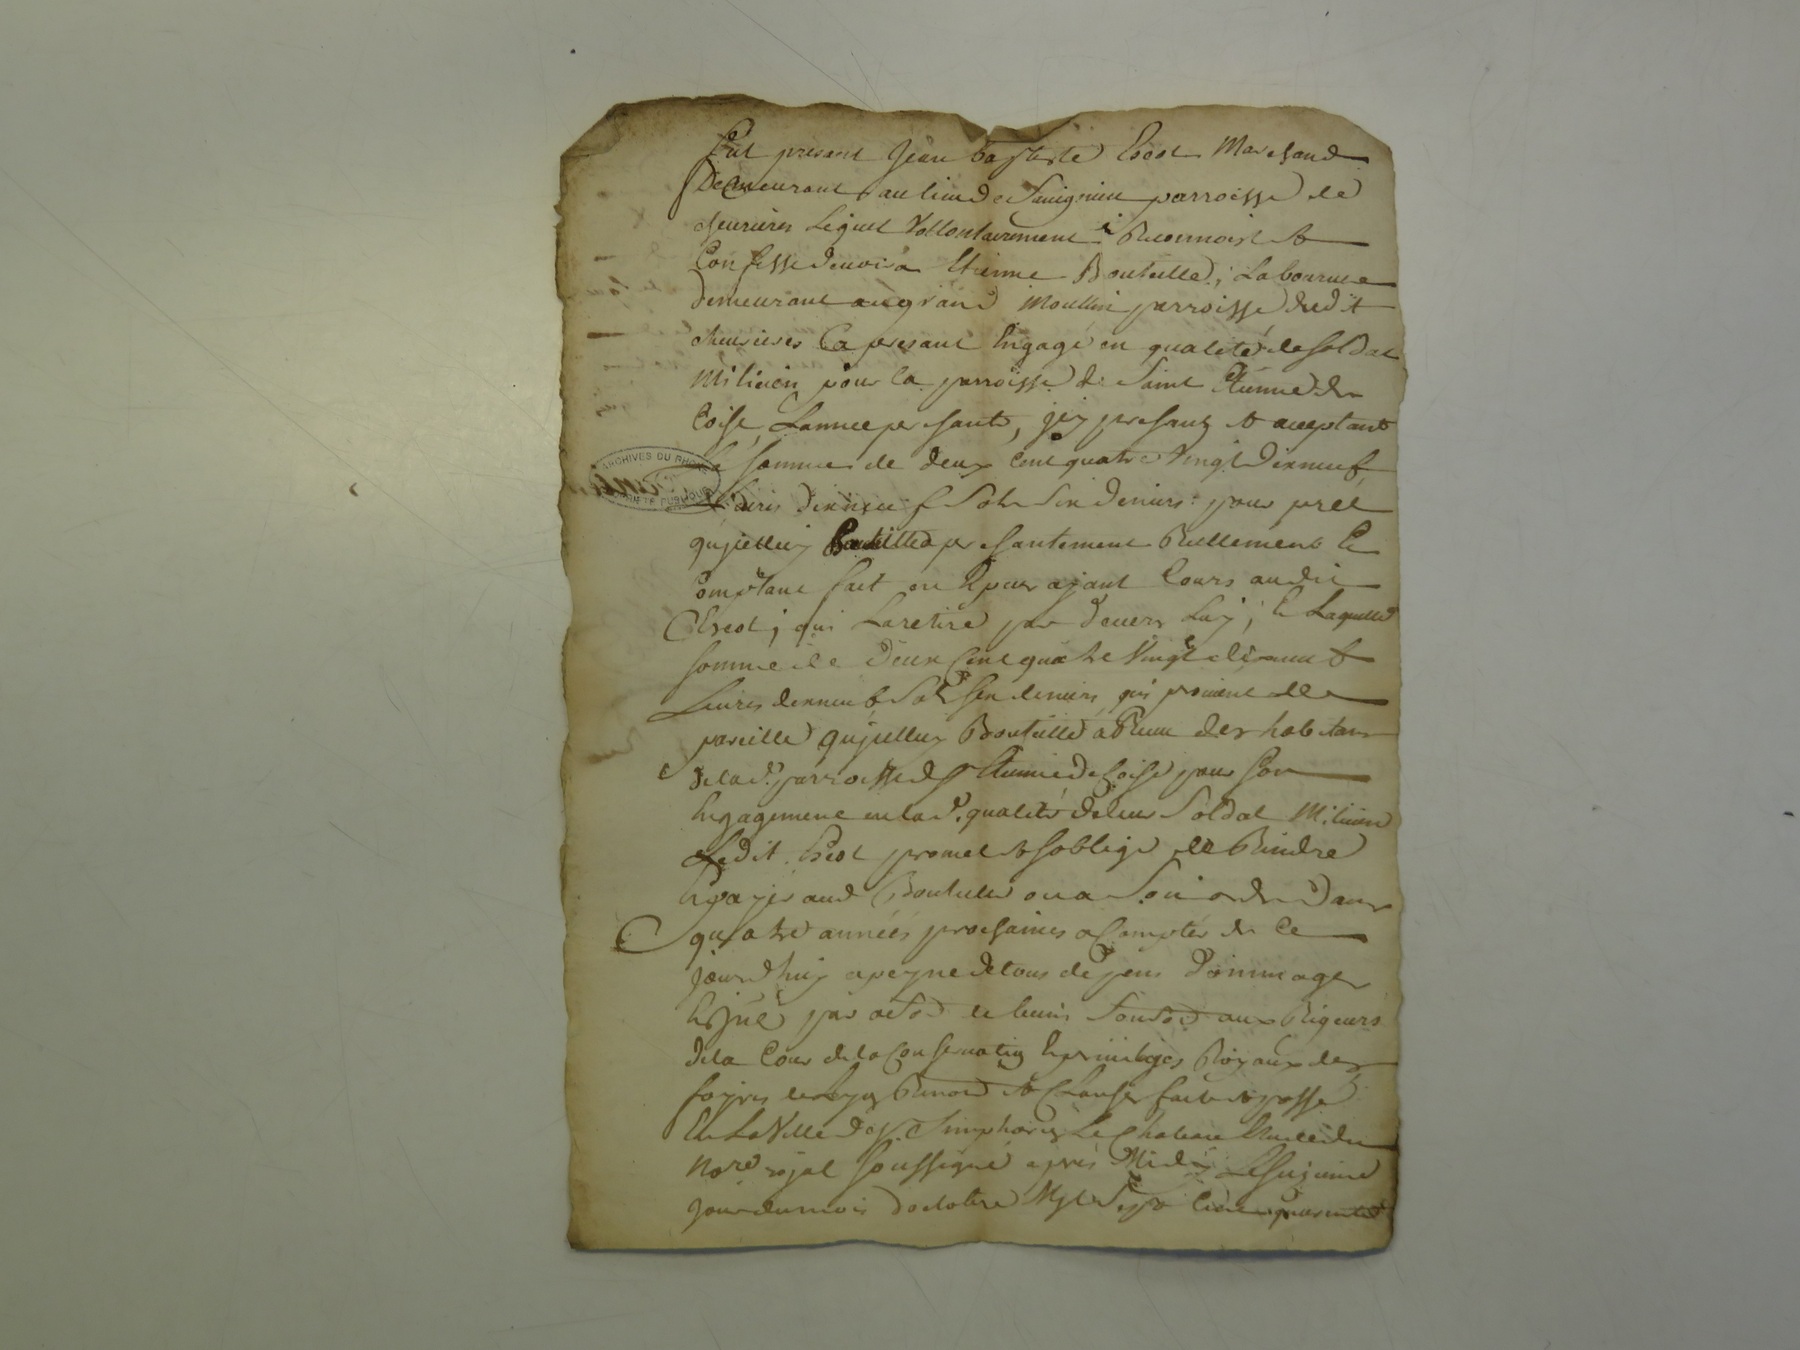 Fut present Jean baptiste Escot Marchand
Demeurant au lieu de Sauignieu parroisse de
cheurieres Lequel Vollontairement Reconnoist &
Confesse deuoir a Etienne Bouteille, Laboureur
demeurant au grand Moullin parroisse dudit
cheurieres a present Engagé en qualité de soldat
Milicien pour la parroisse de Saint Etienne de
Coise Lannee presante, icy presant & acceptant
la somme de deux cent quatre Vingt dixneuf
Liures dixneuf sols six deniers pour pret
qu'jcelluy Bouteille presantement Reellement &
Comptant fait en Especes ajant Cours audit
Escot, qui La retiré par deuers Luy; & Laquelle
somme de deux Cent quatre Vingt dixneuf
Liures dixneuf sols six deniers, qui prouient de
pareille qu'jcelluy Bouteille a Receu des habitans
de lad. parroisse de St Etienne de Coise pour son
Engagement en lad. qualité de leur Soldat Milicien
Ledit Escot promet & soblige de Rendre
& payer aud. Bouteille ou a Son ordre dans
quatre années prochaines a Compter de Ce
jourdhuy a peyne de tous depens dommages
par de biens aux Rigeurs
de la Cour de la Conseruation & priuileges Royaux des
foyres de Lyon Renond & Clauses fait & passé
En La Ville de St. Simphorien Le Chateau Etude du
Nore. royal soussigné apres Midy Le
jour du mois doctobre Mil Sept Cent quarante
ARCHIVES DU RHONE
PROPRIETE PUBLIQUE